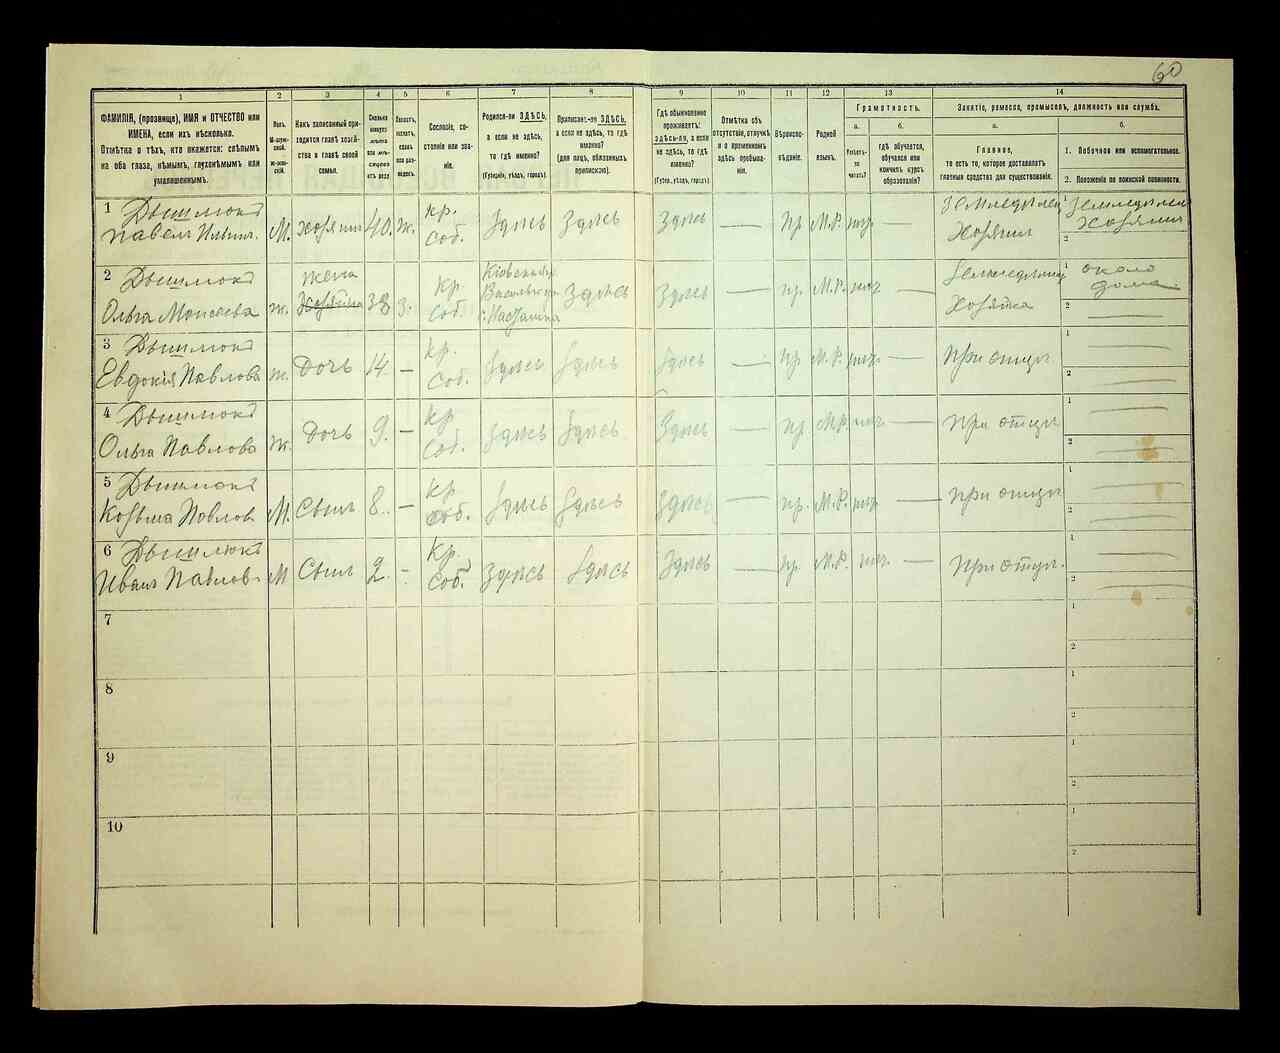 60
1 2 3 4 5 6 7 8 9 10 11 12 13 14
ФАМИЛІЯ, (прозвище), ИМЯ и ОТЧЕСТВО или
ИМЕНА, если ихъ нѣсколько.
Отмѣтка о тѣхъ, кто окажется: слѣпымъ
на оба глаза, нѣмымъ, глухонѣмымъ или
умалишеннымъ.
Полъ.
М-муж-
ской.
Ж-жен-
скій.
Какъ записанный при-
ходится главѣ хозяй-
ства и главѣ своей
семьи.
Сколько
минуло
лѣтъ
или мѣ-
сяцевъ
отъ роду
Холостъ,
женатъ,
вдовъ
или раз-
веденъ.
Сословіе, со-
стояніе или зва-
ніе.
Родился-ли ЗДѢСЬ,
а если не здѣсь,
то гдѣ именно?
(Губернія, уѣздъ, городъ).
Приписанъ-ли ЗДѢСЬ,
а если не здѣсь, то гдѣ
именно?
(для лицъ, обязанныхъ
припискою).
Гдѣ обыкновенно
проживаетъ:
здѣсь-ли, а если
не здѣсь, то гдѣ
именно?
(Губер., уѣздъ, городъ).
Отмѣтка объ
отсутствіи, отлучкѣ
и о временномъ
здѣсь пребыва-
ніи.
Вѣроиспо-
вѣданіе.
Родной
языкъ.
Грамотность.
а. б.
Умѣетъ-
ли
читать?
гдѣ обучается,
обучался или
кончилъ курсъ
образованія?
Занятіе, ремесло, промыселъ, должность или служба.
а. б.
Главное,
то есть то, которое доставляетъ
главныя средства для существованія.
1. Побочное или вспомогательное.
2. Положеніе по воинской повинности.
1 Дышлюкъ
Павелъ М. хозяинъ 40. ж. кр. Соб. Здѣсь Здѣсь Здѣсь — пр М.Р. — Земледѣлец Хозяинъ
1 Земледѣлец Хозяинъ
2
2 Дышлюкъ
Ольга Моисеева ж. жена Хозяина 38 з. кр. Соб. Кіевская Здѣсь Здѣсь — пр. М.Р. — Хозяйка
1 около дома
2 —
3 Дышлюкъ
Евдокія Павлова ж. Дочь 14. — кр. Соб. Здѣсь Здѣсь Здѣсь — пр М.Р. — При отцѣ
1 —
2 —
4 Дышлюкъ
Ольга Павлова ж. Дочь 9. — кр Соб. Здѣсь Здѣсь Здѣсь — пр. М.Р. — При отцѣ
1 —
2 —
5 Дышлюкъ
Козьма Павлов М. Сынъ 8. — кр Соб. Здѣсь Здѣсь Здѣсь — пр. М.Р. — При отцѣ
1 —
2 —
6 Дышлюкъ
Иванъ Павлов. М Сынъ 2. - Кр. Соб. Здѣсь Здѣсь Здѣсь — пр. М.Р. — При отцѣ.
1 —
2 —
7
1
2
8
1
2
9
1
2
10
1
2